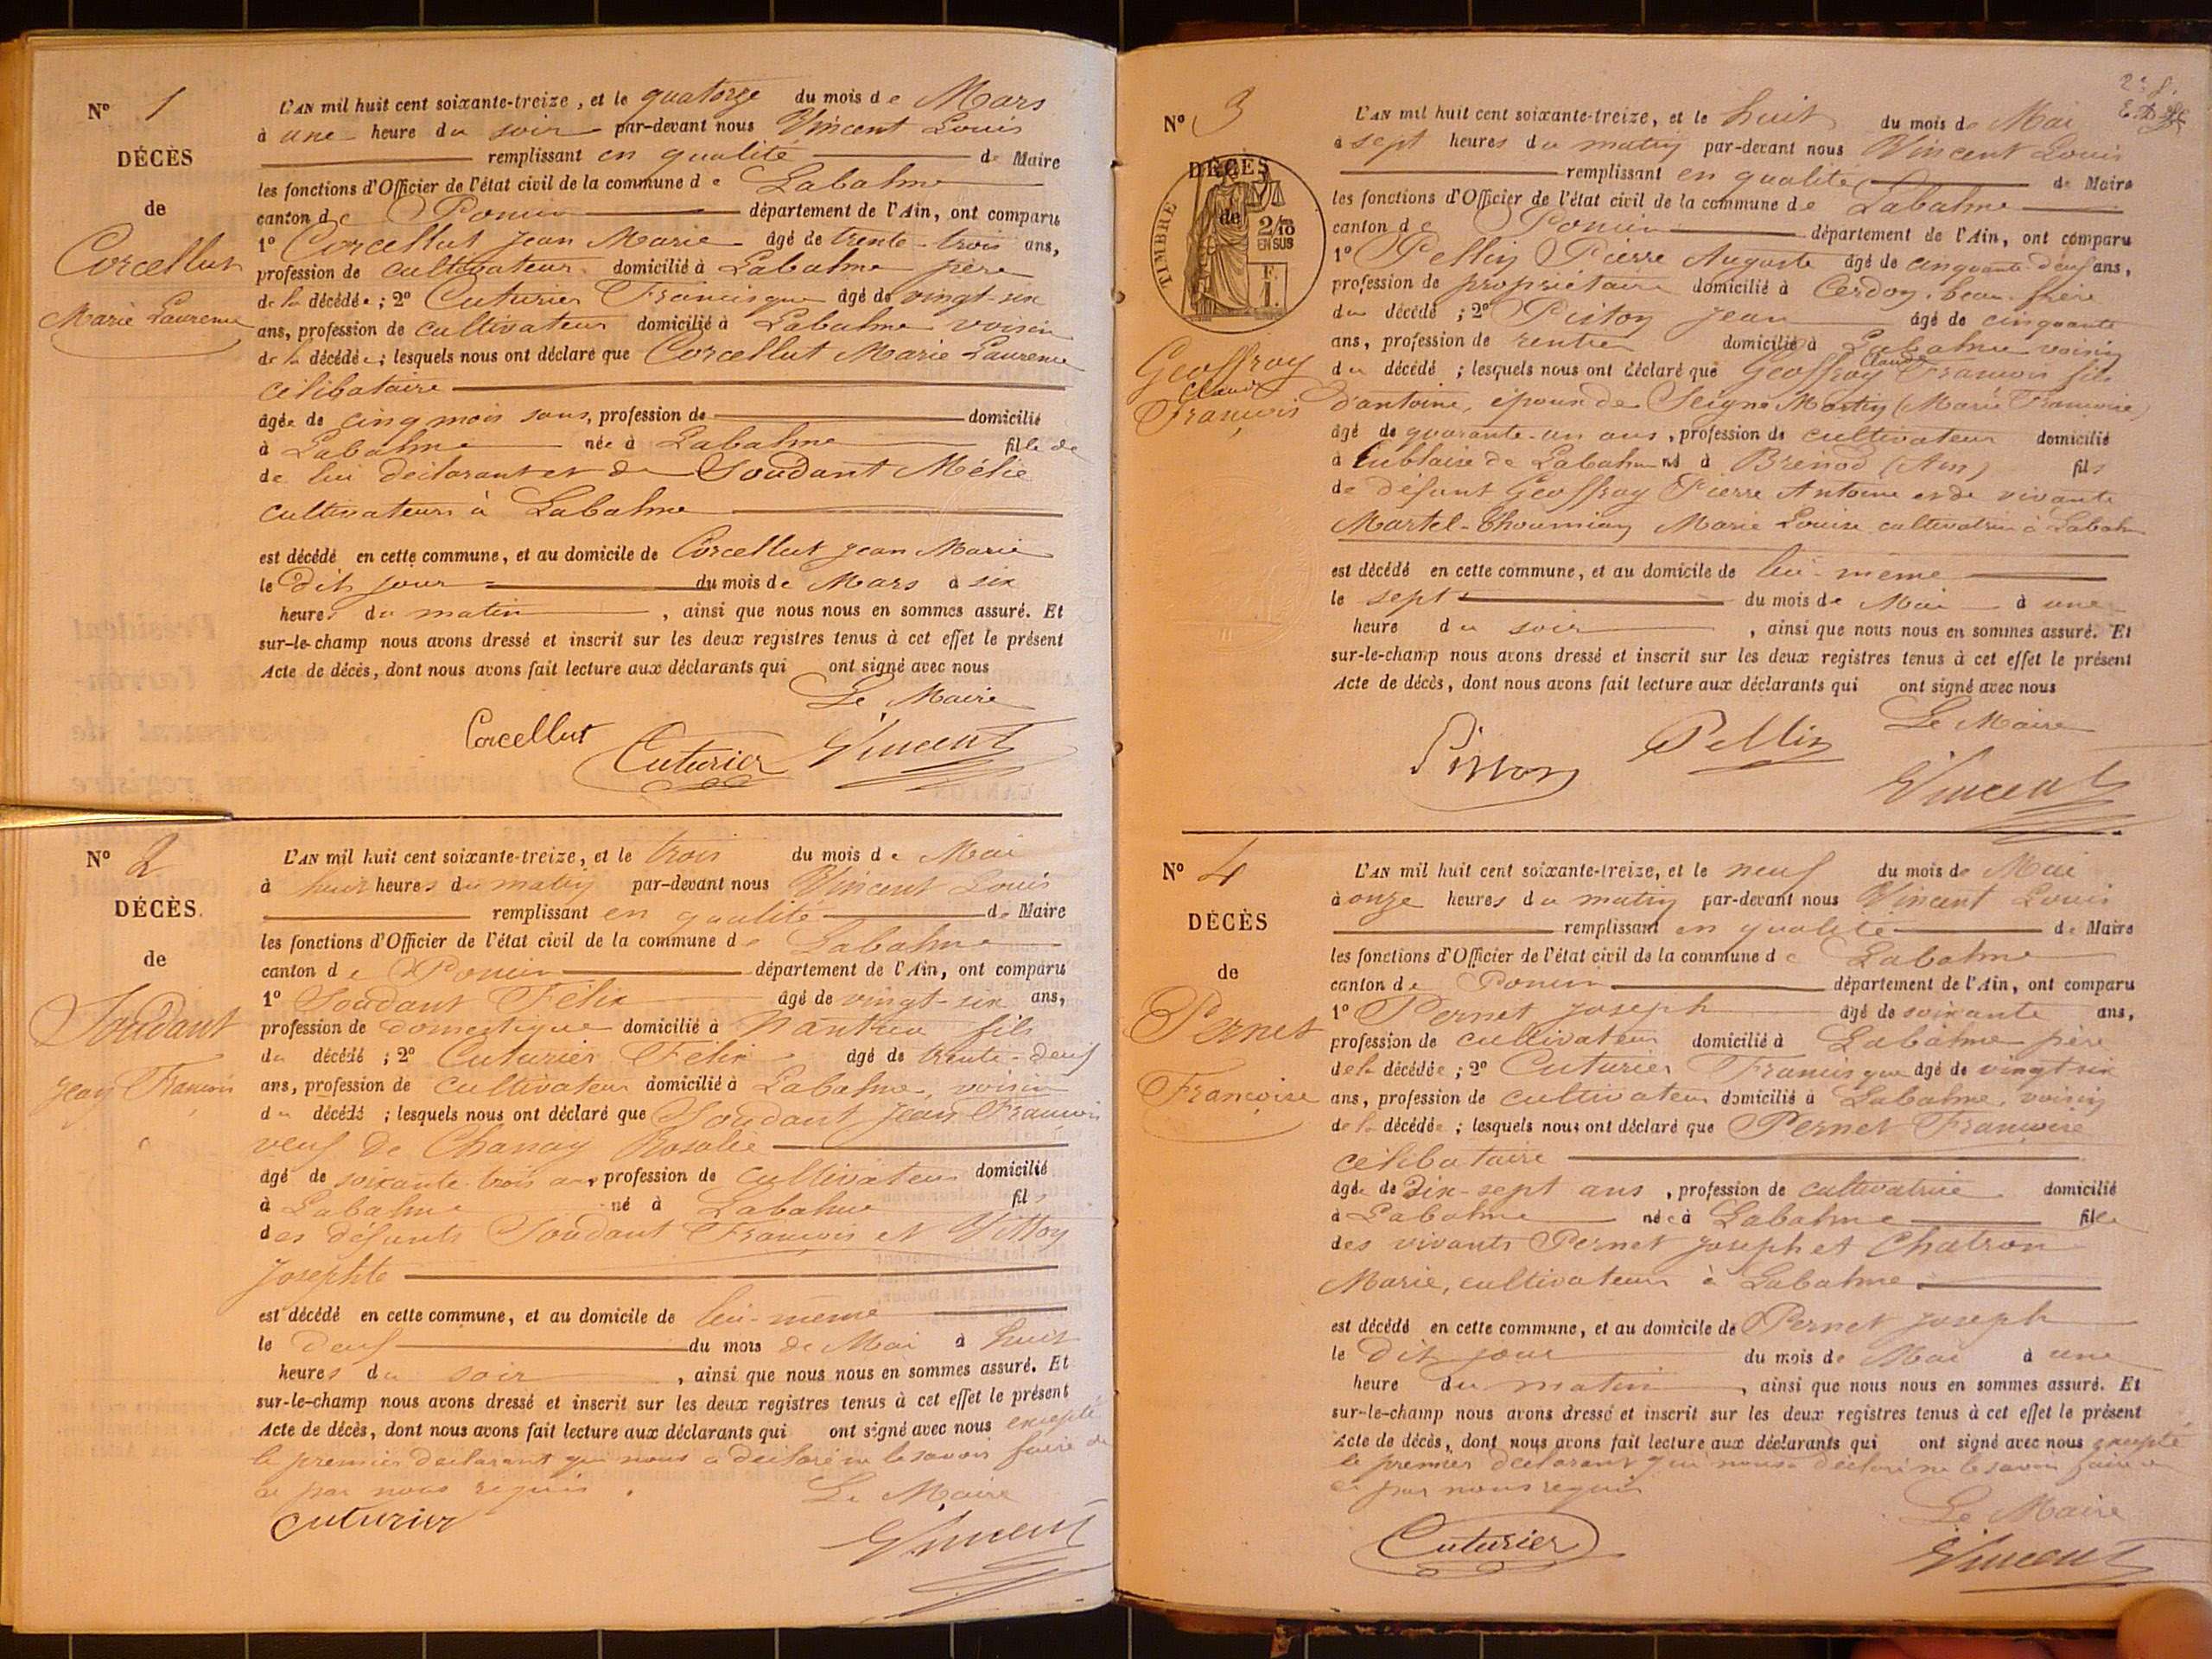 N° 1
DÉCÈS
de
Corcellut
Marie Laurence
L'AN mil huit cent soixante-treize, et le quatorze du mois de Mars
à une heure du soir par-devant nous Vincent Louis
remplissant en qualité de Maire
les fonctions d'Officier de l'état civil de la commune de Labalme
canton de Poncin département de l'Ain, ont comparu
1° Corcellut Jean Marie âgé de trente-trois ans,
profession de cultivateur domicilié à Labalme père
de la décédée; 2° Cuturier Francisque âgé de vingt-six
ans, profession de cultivateur domicilié à Labalme voisin
de la décédée; lesquels nous ont déclaré que Corcellut Marie Laurence
célibataire
âgée de cinq mois sans, profession de domicilié
à Labalme née à Labalme fille de
de lui déclarant et de Soudant Mélie
cultivateurs à Labalme
est décédé en cette commune, et au domicile de Corcellut Jean Marie
le dit jour du mois de Mars à six
heures du matin, ainsi que nous nous en sommes assuré. Et
sur-le-champ nous avons dressé et inscrit sur les deux registres tenus à cet effet le présent
Acte de décès, dont nous avons fait lecture aux déclarants qui ont signé avec nous
Le Maire
Corcellut Cuturier Vincent
N° 2
DÉCÈS.
de
Soudant
Jean François
L'AN mil huit cent soixante-treize, et le trois du mois de Mai
à huit heures du matin par-devant nous Vincent Louis
remplissant en qualité de Maire
les fonctions d'Officier de l'état civil de la commune de Labalme
canton de Poncin département de l'Ain, ont comparu
1° Soudant Félix âgé de vingt-six ans,
profession de domestique domicilié à Nantua fils
du décédé; 2° Cuturier Félix âgé de trente-deux
ans, profession de cultivateur domicilié à Labalme, voisin
du décédé; lesquels nous ont déclaré que Soudant Jean François
veuf de Chanay Rosalie
âgé de soixante-trois ans, profession de cultivateur domicilié
à Labalme né à Labalme fils
des défunts Soudant François et Vitton
Josephte
est décédé en cette commune, et au domicile de lui-même
le deux du mois de Mai à huit
heures du soir, ainsi que nous nous en sommes assuré. Et
sur-le-champ nous avons dressé et inscrit sur les deux registres tenus à cet effet le présent
Acte de décès, dont nous avons fait lecture aux déclarants qui ont signé avec nous excepté
le premier déclarant qui nous a déclaré ne le savoir faire de
ce par nous requis.
Le Maire
Cuturier Vincent
N° 3
DÉCÈS
de
TIMBRE
2/10
EN SUS
F.
1.
Geoffray
Claude
François
L'AN mil huit cent soixante-treize, et le huit du mois de Mai
à sept heures du matin par-devant nous Vincent Louis
remplissant en qualité de Maire
les fonctions d'Officier de l'état civil de la commune de Labalme
canton de Poncin département de l'Ain, ont comparu
1° Pellin Pierre Auguste âgé de cinquante-deux ans,
profession de propriétaire domicilié à Cerdon, beau-frère
du décédé; 2° Piston Jean âgé de cinquante
ans, profession de rentier domicilié à Labalme voisin
du décédé; lesquels nous ont déclaré que Geoffray Claude François fils
d'antoine, époux de Seigne Martin (Marie Françoise)
âgé de quarante-un ans, profession de cultivateur domicilié
à de Labalme né à Brénod (Ain) fils
de défunt Geoffray Pierre Antoine et de vivante
Martel-Thoumian Marie Louise cultivatrice à Labalme
est décédé en cette commune, et au domicile de lui-même
le sept du mois de Mai à une
heure du soir, ainsi que nous nous en sommes assuré. Et
sur-le-champ nous avons dressé et inscrit sur les deux registres tenus à cet effet le présent
Acte de décès, dont nous avons fait lecture aux déclarants qui ont signé avec nous
Le Maire
Piston Pellin
Vincent
N° 4
DÉCÈS
de
Pernet
Françoise
L'AN mil huit cent soixante-treize, et le neuf du mois de Mai
à onze heures du matin par-devant nous Vincent Louis
remplissant en qualité de Maire
les fonctions d'Officier de l'état civil de la commune de Labalme
canton de Poncin département de l'Ain, ont comparu
1° Pernet Joseph âgé de soixante ans,
profession de cultivateur domicilié à Labalme père
de la décédée; 2° Cuturier Francisque âgé de vingt-six
ans, profession de cultivateur domicilié à Labalme, voisin
de la décédée; lesquels nous ont déclaré que Pernet Françoise
célibataire
âgée de Dix-sept ans, profession de cultivatrice domicilié
à Labalme née à Labalme fille
des vivants Pernet Joseph et Chatron
Marie, cultivateurs à Labalme
est décédé en cette commune, et au domicile de Pernet Joseph
le dit jour du mois de Mai à une
heure du matin, ainsi que nous nous en sommes assuré. Et
sur-le-champ nous avons dressé et inscrit sur les deux registres tenus à cet effet le présent
Acte de décès, dont nous avons fait lecture aux déclarants qui ont signé avec nous excepté
le premier déclarant qui nous a déclaré ne le savoir faire de
ce par nous requis
Le Maire
Cuturier Vincent